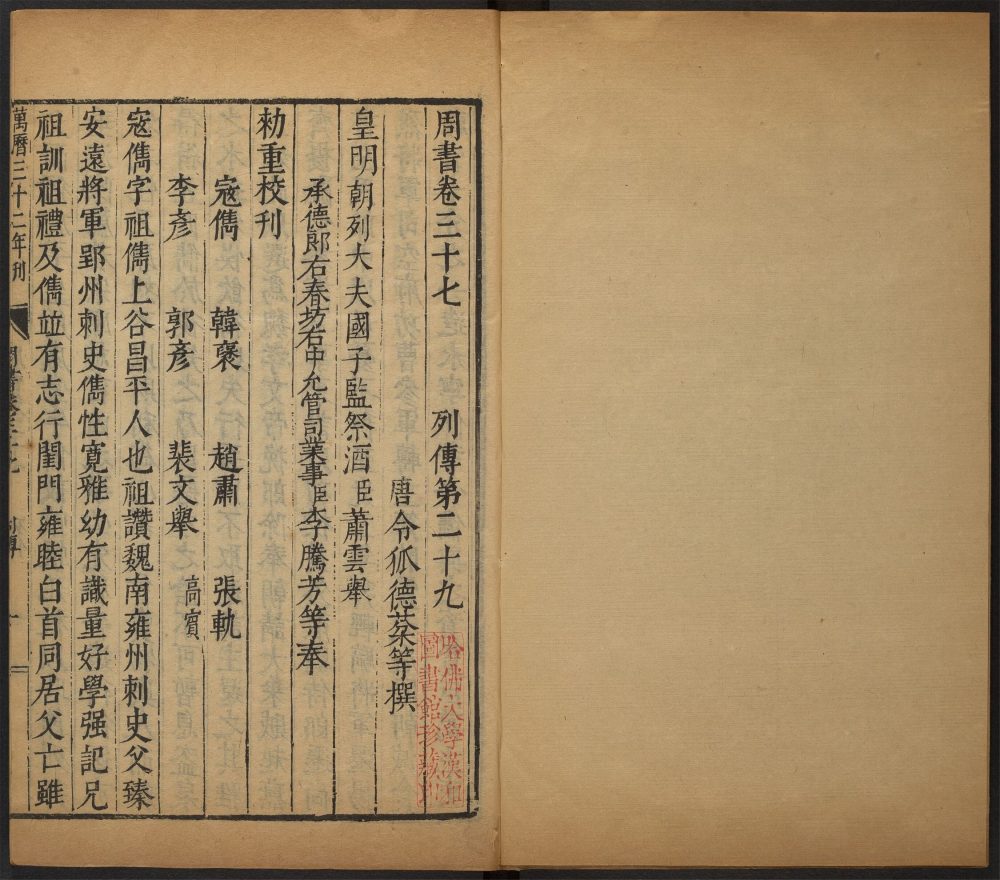 周書卷三十七 列傳第二十九
唐令狐德棻等撰
皇明朝列大夫國子監祭酒臣蕭雲舉
承德郎右春坊右中允管司業事臣李騰芳等奉
勑重校刊
寇儁 韓襃 趙肅 張軌
李彥 郭彥 裴文舉 高賓
寇儁字祖儁上谷昌平人也祖讚魏南雍州刺史父臻
安遠將軍郢州刺史儁性寬雅幼有識量好學强記兄
祖訓祖禮及儁並有志行閨門雍睦白首同居父亡雖
萬曆三十二年刊
列傳
一
哈佛大學漢和
圖書館珍藏印